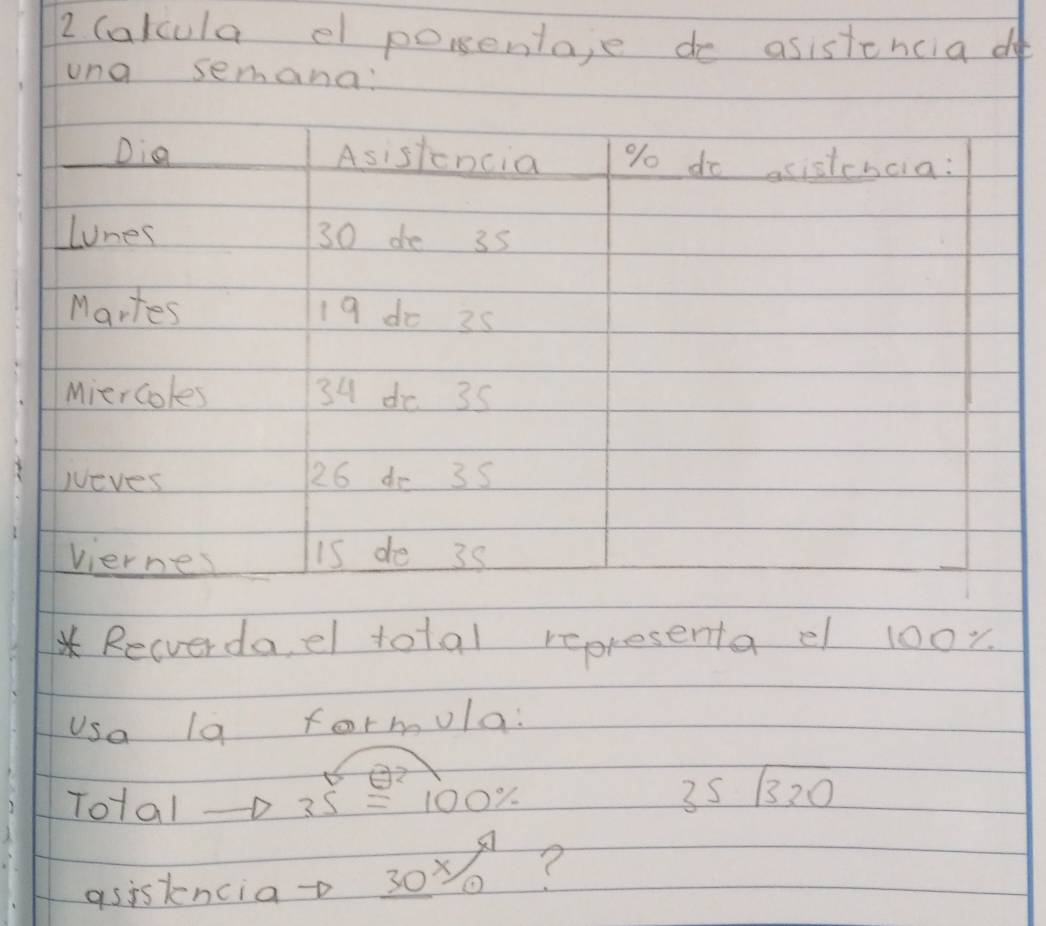 2. Calcula el porsentaje de asistencia de
una semana:
Dia Asistencia % de asistencia:
Lunes 30 de 35
Martes 19 de 35
Miercoles 34 de 35
Jueves 26 de 35
Viernes 15 de 35
* Recuerda, el total representa el 100%.
Usa la formula:
Total → 35 = 100% 35 √320
② 
asistencia → 30 x ① ?